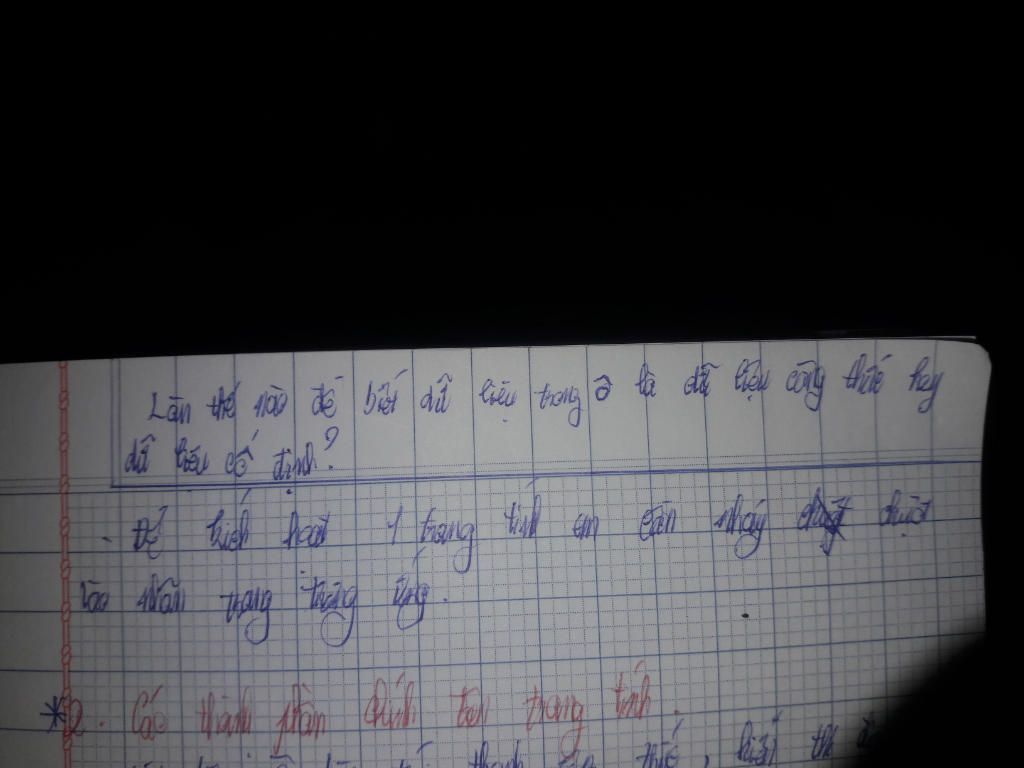 Làn thế nào để biết dữ liệu trong ô là dữ liệu công thức hay
dữ liệu cố định?
- Để kích hoạt 1 trang tính em cần nháy chuột
vào nhãn trang tương ứng.
*2. Các thành phần chính trên trang tính.
thanh công thức, hiển thị